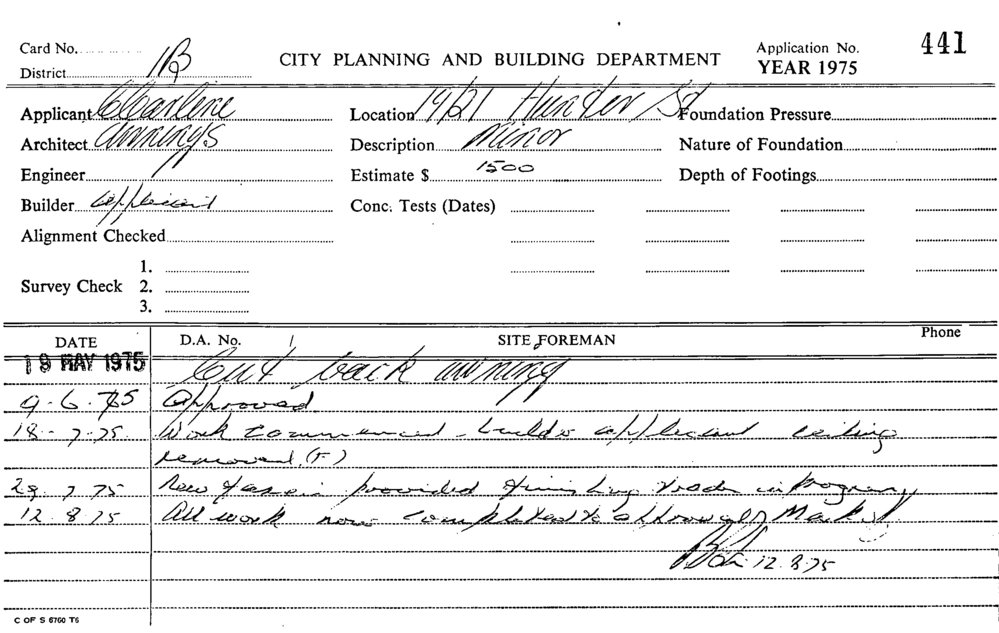 Card No.
District 1B
CITY PLANNING AND BUILDING DEPARTMENT
Application No. 441
YEAR 1975
Applicant Charlene
Location 19/21 Hunter St
Foundation Pressure
Architect Awnings
Description Minor
Nature of Foundation
Engineer
Estimate $ 1500
Depth of Footings
Builder applicant
Conc. Tests (Dates)
Alignment Checked
1.
Survey Check 2.
3.
DATE D.A. No. SITE FOREMAN Phone
19 MAY 1975 Cut back awning
9.6.75 Approved
18-7-75. Work commenced - builder applicant ceiling
removed. (F.)
29.7.75 New fascia provided finishing trades in progress
12.8.75 All work now completed to approval Mark
12.8.75
C OF S 6760 T6